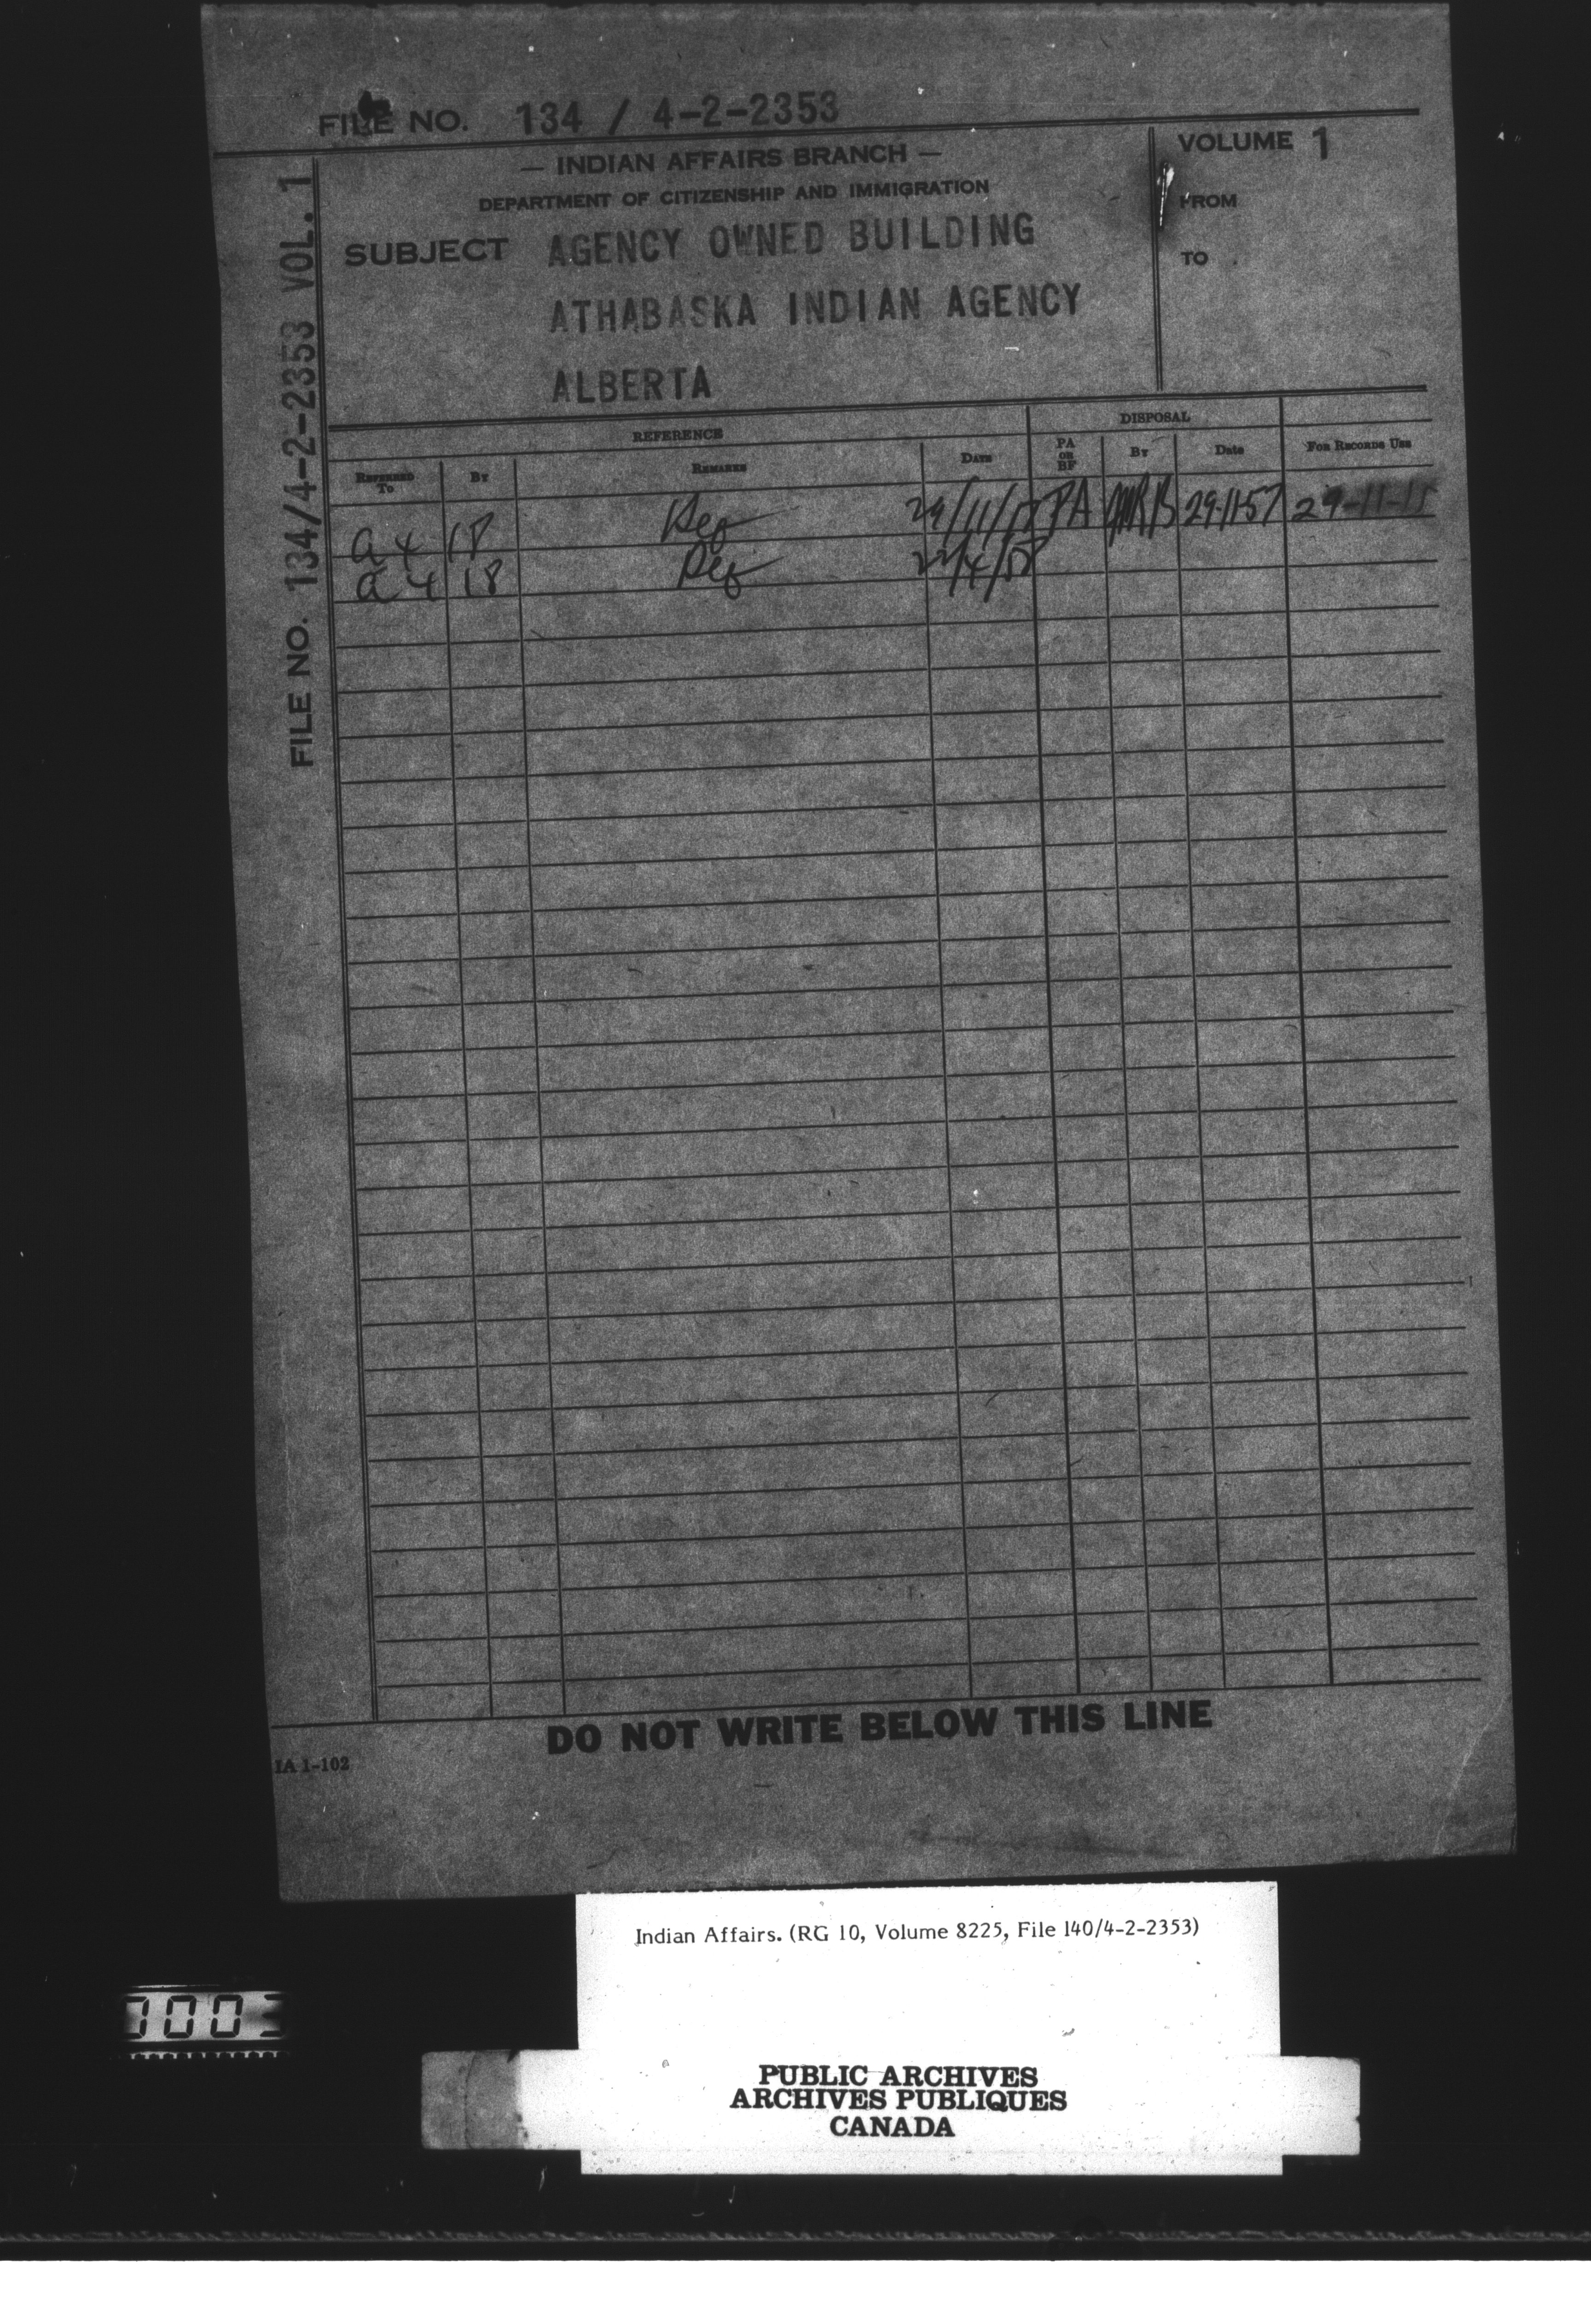 FILE NO. 134 / 4-2-2353
FILE NO. 134/4-2-2353 VOL. 1
— INDIAN AFFAIRS BRANCH —
DEPARTMENT OF CITIZENSHIP AND IMMIGRATION
SUBJECT AGENCY OWNED BUILDING
ATHABASKA INDIAN AGENCY
ALBERTA
VOLUME 1
FROM
TO
REFERENCE
DISPOSAL
REFERRED TO
BY
REMARKS
DATE
PA OR BF
BY
Date
FOR RECORDS USE
a 4 18 29/11/57 PA 29-11-57 29-11-
a 4 18 22/4/58
DO NOT WRITE BELOW THIS LINE
IA 1-102
Indian Affairs. (RG 10, Volume 8225, File 140/4-2-2353)
PUBLIC ARCHIVES
ARCHIVES PUBLIQUES
CANADA